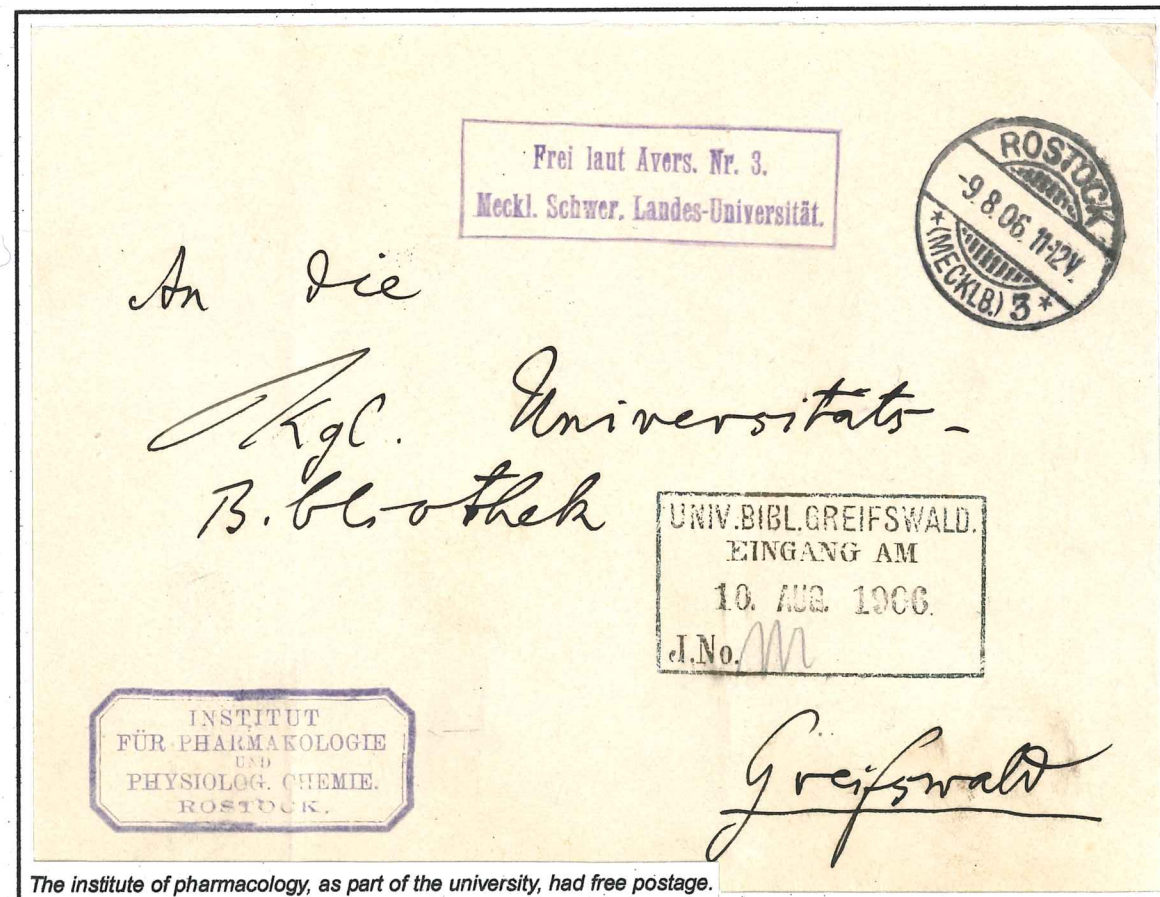 Frei laut Avers. Nr. 3.
Meckl. Schwer. Landes-Universität.
ROSTOCK
-9.8.06. 11-12V.
*(MECKLB.) 3*
An die
Kgl. Universitäts-
Bibliothek
UNIV.BIBL.GREIFSWALD.
EINGANG AM
10. AUG. 1906.
J.No.
INSTITUT
FÜR PHARMAKOLOGIE
UND
PHYSIOLOG. CHEMIE.
ROSTOCK.
Greifswald
The institute of pharmacology, as part of the university, had free postage.